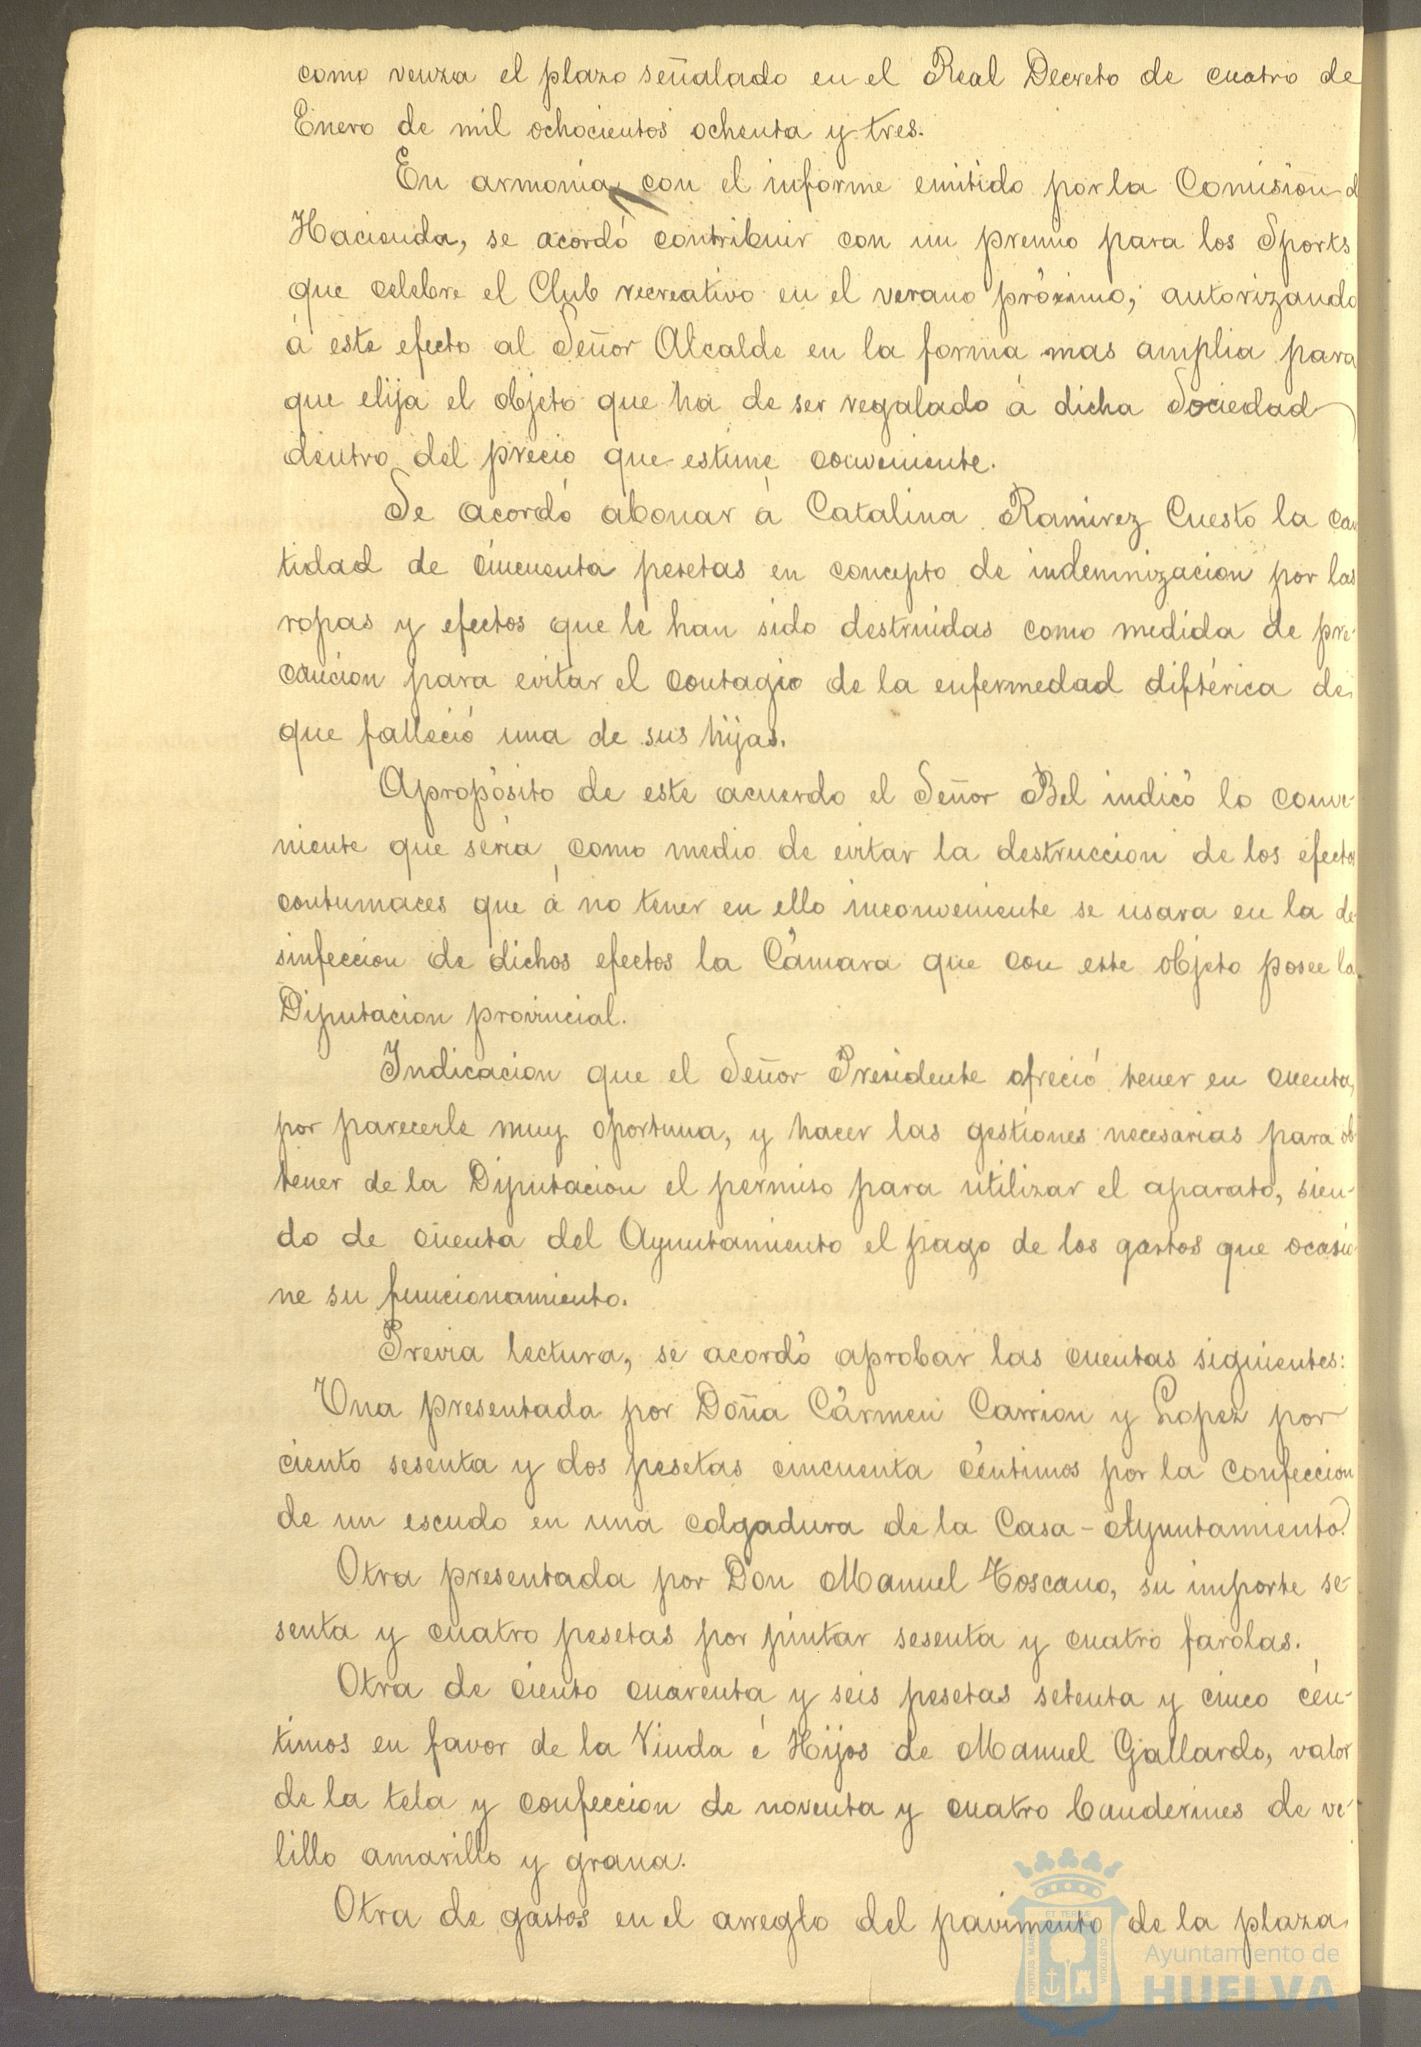 como venza el plazo señalado en el Real Decreto de cuatro de
Enero de mil ochocientos ochenta y tres.
En armonia con el informe emitido por la Comision d
Hacienda, se acordó contribuir con un premio para los Sports
que celebre el Club recreativo en el verano próximo; autorizando
á este efecto al Señor Alcalde en la forma mas amplia para
que elija el objeto que ha de ser regalado á dicha Sociedad
dentro del precio que estime conveniente.
Se acordó abonar á Catalina Ramirez Cuesto la can
tidad de cincuenta pesetas en concepto de indemnizacion por las
ropas y efectos que le han sido destruidas como medida de pre-
caucion para evitar el contagio de la enfermedad diftérica de
que falleció una de sus hijas.
Apropósito de este acuerdo el Señor Bel indicó lo conve-
niente que sería como medio de evitar la destruccion de los efectos
contumaces que á no tener en ello inconveniente se usara en la de-
sinfeccion de dichos efectos la Cámara que con este objeto posee la
Diputacion provincial.
Indicacion que el Señor Presidente ofreció tener en cuenta,
por parecerle muy oportuna, y hacer las gestiones necesarias para ob-
tener de la Diputacion el permiso para utilizar el aparato, sien-
do de cuenta del Ayuntamiento el pago de los gastos que ocasio-
ne su funcionamiento.
Previa lectura, se acordó aprobar las cuentas siguientes:
Una presentada por Doña Cármen Carrion y Lopez por
ciento sesenta y dos pesetas cincuenta céntimos por la confeccion
de un escudo en una colgadura de la Casa-Ayuntamiento.
Otra presentada por Don Manuel Toscano, su importe se-
senta y cuatro pesetas por pintar sesenta y cuatro farolas.
Otra de ciento cuarenta y seis pesetas setenta y cinco cén-
timos en favor de la Viuda é Hijos de Manuel Gallardo, valor
de la tela y confeccion de noventa y cuatro banderines de ve-
lillo amarillo y grana.
Otra de gastos en el arreglo del pavimento de la plaza
Ayuntamiento de
HUELVA